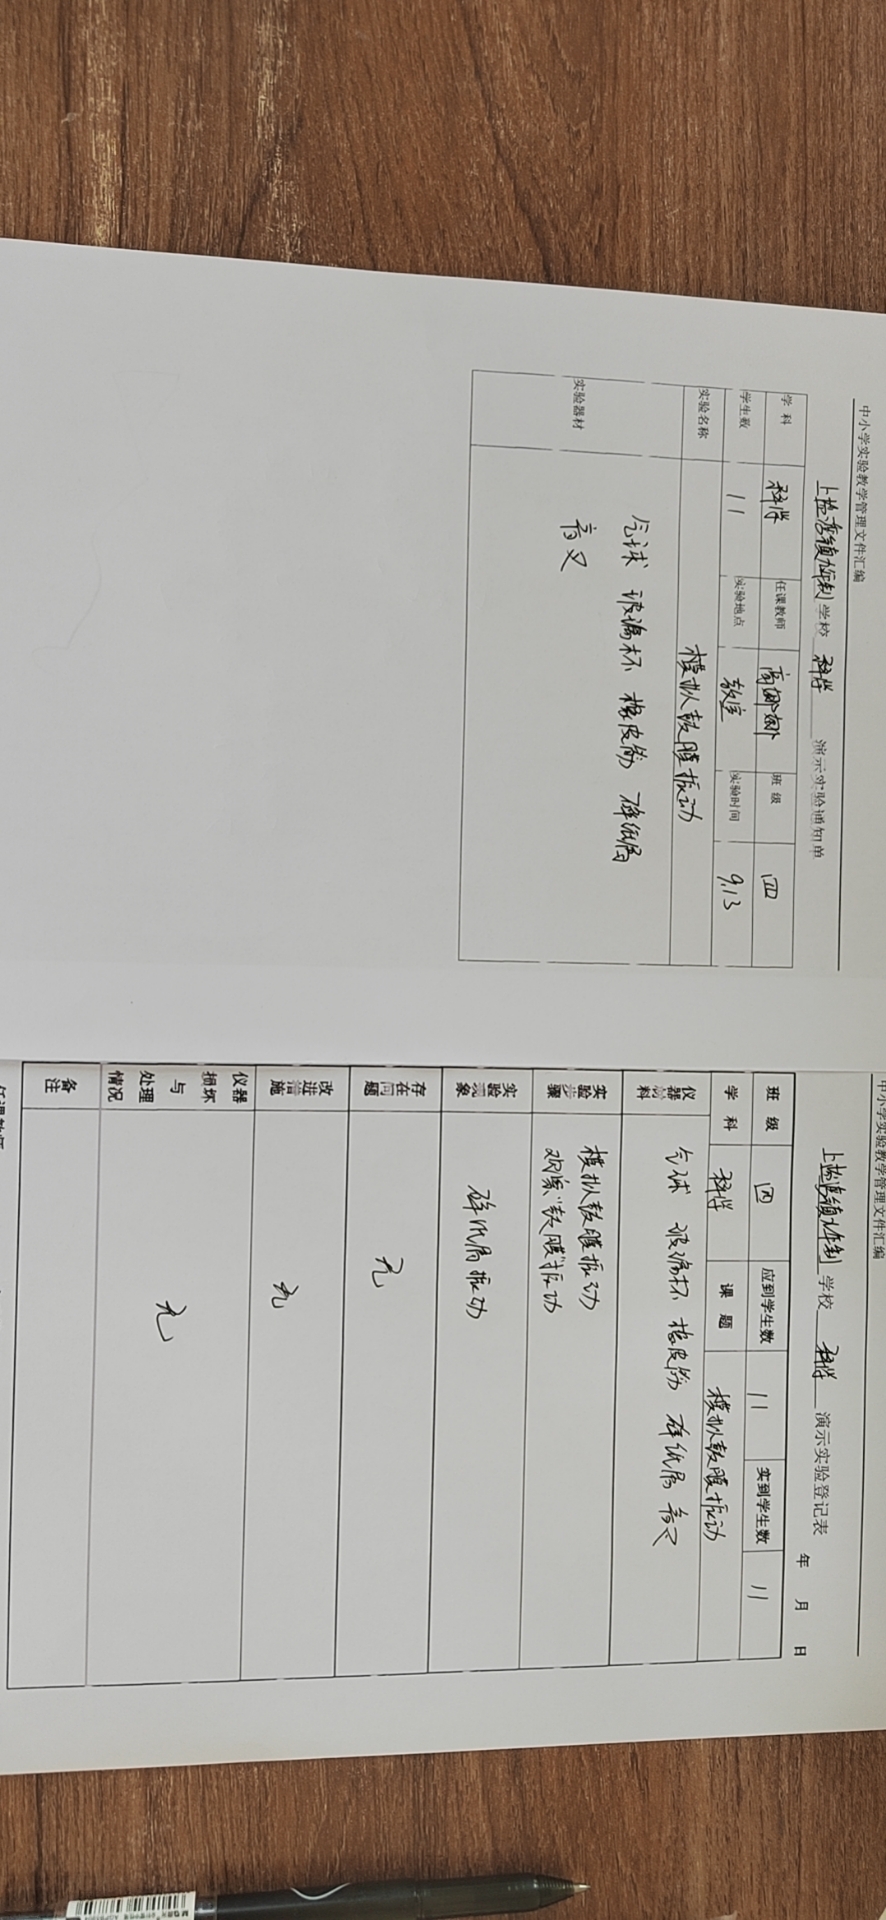 中小学实验教学管理文件汇编
上盐 镇 学校 科学 演示实验通知单
学科 科学 任课教师 高 班级 四
学生数 11 实验地点 教室 实验时间 9.13
实验名称 模拟鼓膜振动
实验器材 气球 玻璃杯 橡皮筋 碎纸屑
音叉
中小学实验教学管理文件汇编
上盐 镇 学校 科学 演示实验登记表
年 月 日
班级 四 应到学生数 11 实到学生数 11
学科 科学 课题 模拟鼓膜振动
仪器材料 气球 玻璃杯 橡皮筋 碎纸屑 音叉
实验步骤 模拟鼓膜振动
观察“鼓膜”振动
实验现象 碎纸屑振动
存在问题 无
改进措施 无
仪器损坏与处理情况 无
备注
任课教师